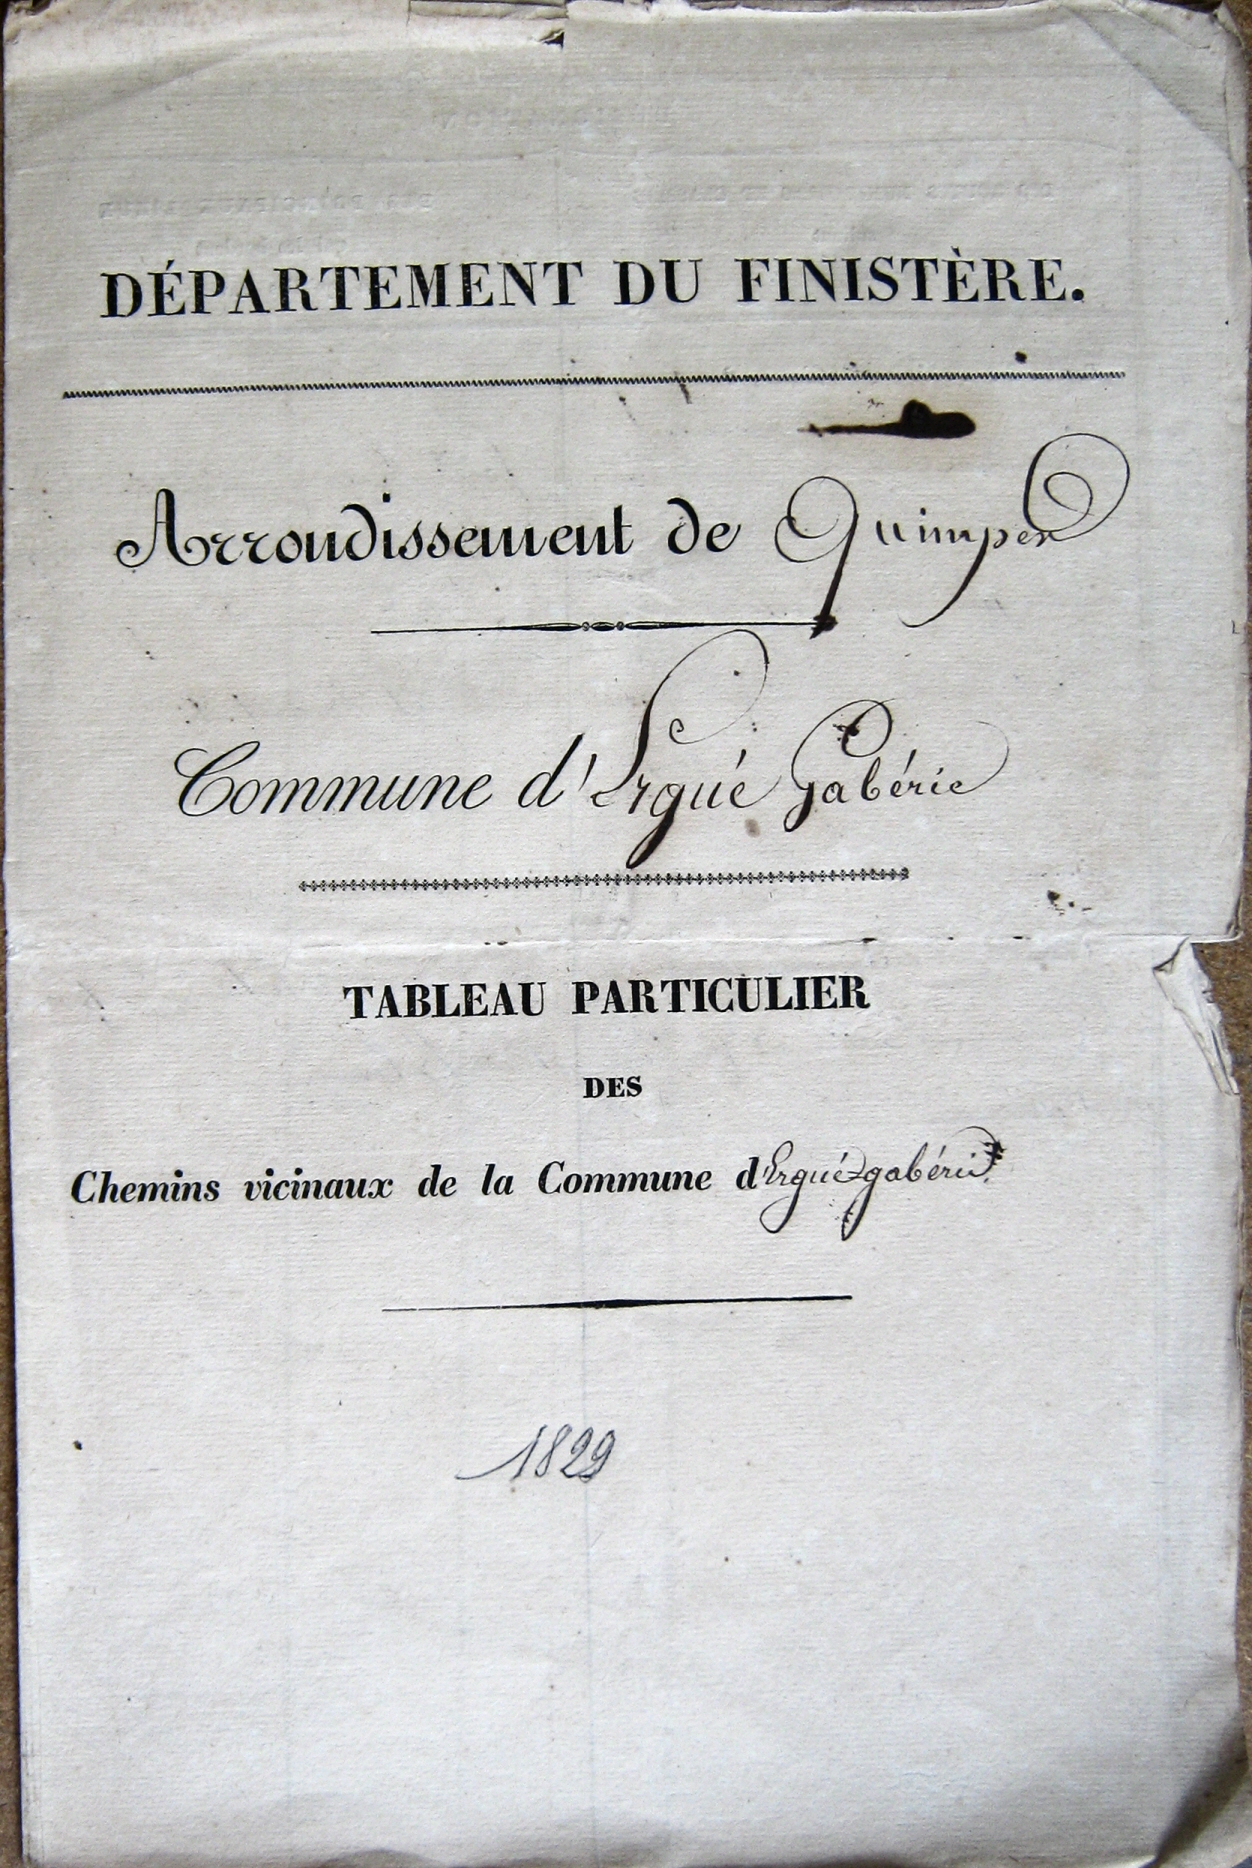 DÉPARTEMENT DU FINISTÈRE.
Arrondissement de Quimper
Commune d'Ergué Gabéric
TABLEAU PARTICULIER
DES
Chemins vicinaux de la Commune d'Ergué gabéric
1829